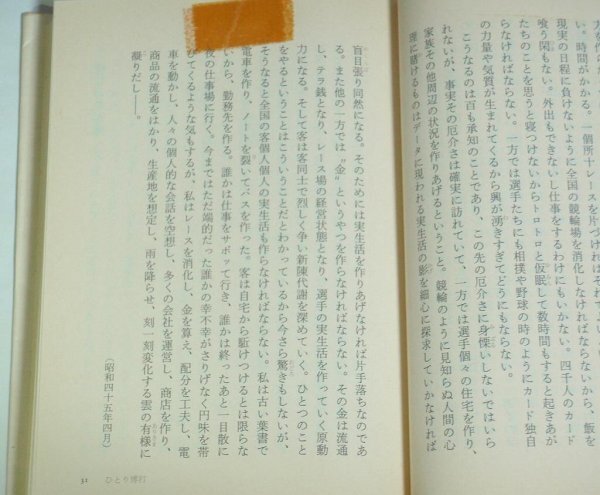 い。時間がかる。一個所十レースを片づければそれで
現実の日程に負けないように全国の競輪場を消化しなければならないから、飯を
喰う閑もない。外出もできないし仕事をするわけにもいかない。四千人のカード
たちのことを思うと寝つけないからトロトロと仮眠して数時間もすると起きあが
らなければならない。一方では選手たちにも相撲や野球の時のようにカード独自
の力量や気質が生まれてくるから興が湧きすぎてどうにもならない。
こうなるのは百も承知のことであり、この先の厄介さに身慄いしないではいら
れないが、事実その厄介さは確実に訪れていて、一方では選手個々の住宅を作り、
家族その他周辺の状況を作りあげるということ。競輪のように見知らぬ人間の心
理に賭けるものはデータに現われる実生活の影を細心に探求していかなければ
盲目張り同然になる。そのためには実生活を作りあげなければ片手落ちなのであ
る。また他の一方では〝金〟というやつを作らなければならない。その金は流通
し、テラ銭となり、レース場の経営状態となり、選手の実生活を作っていく原動
力になる。そして客は客同士で烈しく争い新陳代謝を深めていく。ひとつのこと
をやるということはこういうことだとわかっているから今さら驚きもしないが、
そうなると全国の客個人個人の実生活も作らなければならない。私は古い葉書で
電車を作り、ノートを裂いてバスを作った。客は自宅から駆けつけるとは限らな
いから、勤務先を作る。誰かは仕事をサボッて行き、誰かは終ったあと一目散に
夜の仕事場に行く。今まではただ端的だった誰かの幸不幸がさりげなく円味を帯
びてくるような気もするが、私はレースを消化し、金を算え、配分を工夫し、電
車を動かし、人々の個人的な会話を空想し、多くの会社を運営し、商店を作り、
商品の流通をはかり、生産地を想定し、雨を降らせ、刻一刻変化する雲の有様に
凝りだし――。
（昭和四十五年四月）
31 ひとり博打